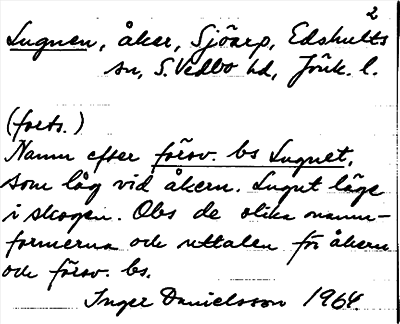 2
Lugnen, åker, Sjöarp, Edshults
sn, S. Vedbo hd, Jönk. l.
(forts.)
Namn efter försv. bs Lugnet,
som låg vid åkern. Lugnt läge
i skogen. Obs de olika namn-
formerna och uttalen för åkern
och försv. bs.
Inger Danielsson 1964.